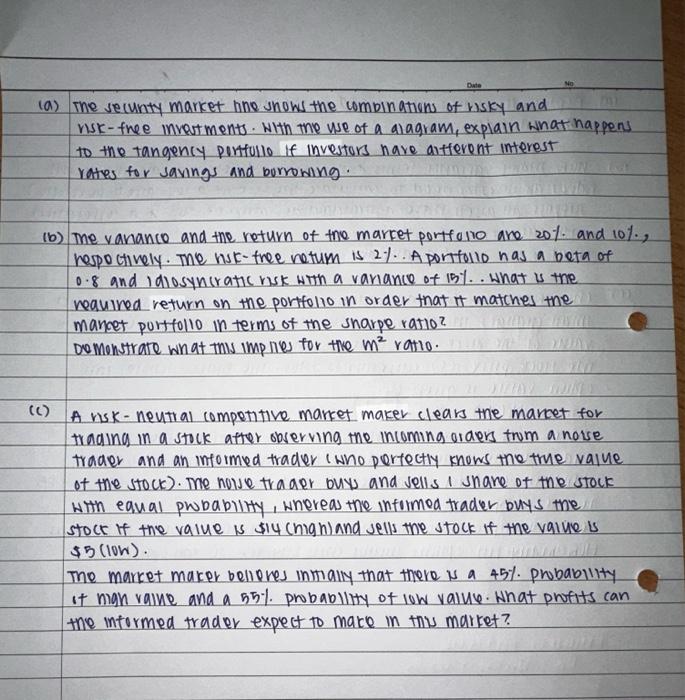 Date No
(a) The security market line shows the combinations of risky and
risk-free investments. With the use of a diagram, explain what happens
to the tangency portfolio if investors have different interest
rates for savings and borrowing.
(b) The variance and the return of the market portfolio are 20% and 10%,
respectively. The risk-free return is 2%. A portfolio has a beta of
0.8 and idiosyncratic risk with a variance of 15%. What is the
required return on the portfolio in order that it matches the
market portfolio in terms of the sharpe ratio?
Demonstrate what this implies for the m² ratio.
(c) A risk-neutral competitive market maker clears the market for
trading in a stock after observing the incoming orders from a noise
trader and an informed trader (who perfectly knows the true value
of the stock). The noise trader buys and sells 1 share of the stock
with equal probability, whereas the informed trader buys the
stock if the value is $14 (high) and sells the stock if the value is
$5 (low).
The market maker believes initially that there is a 45% probability
of high value and a 55% probability of low value. What profits can
the informed trader expect to make in this market?